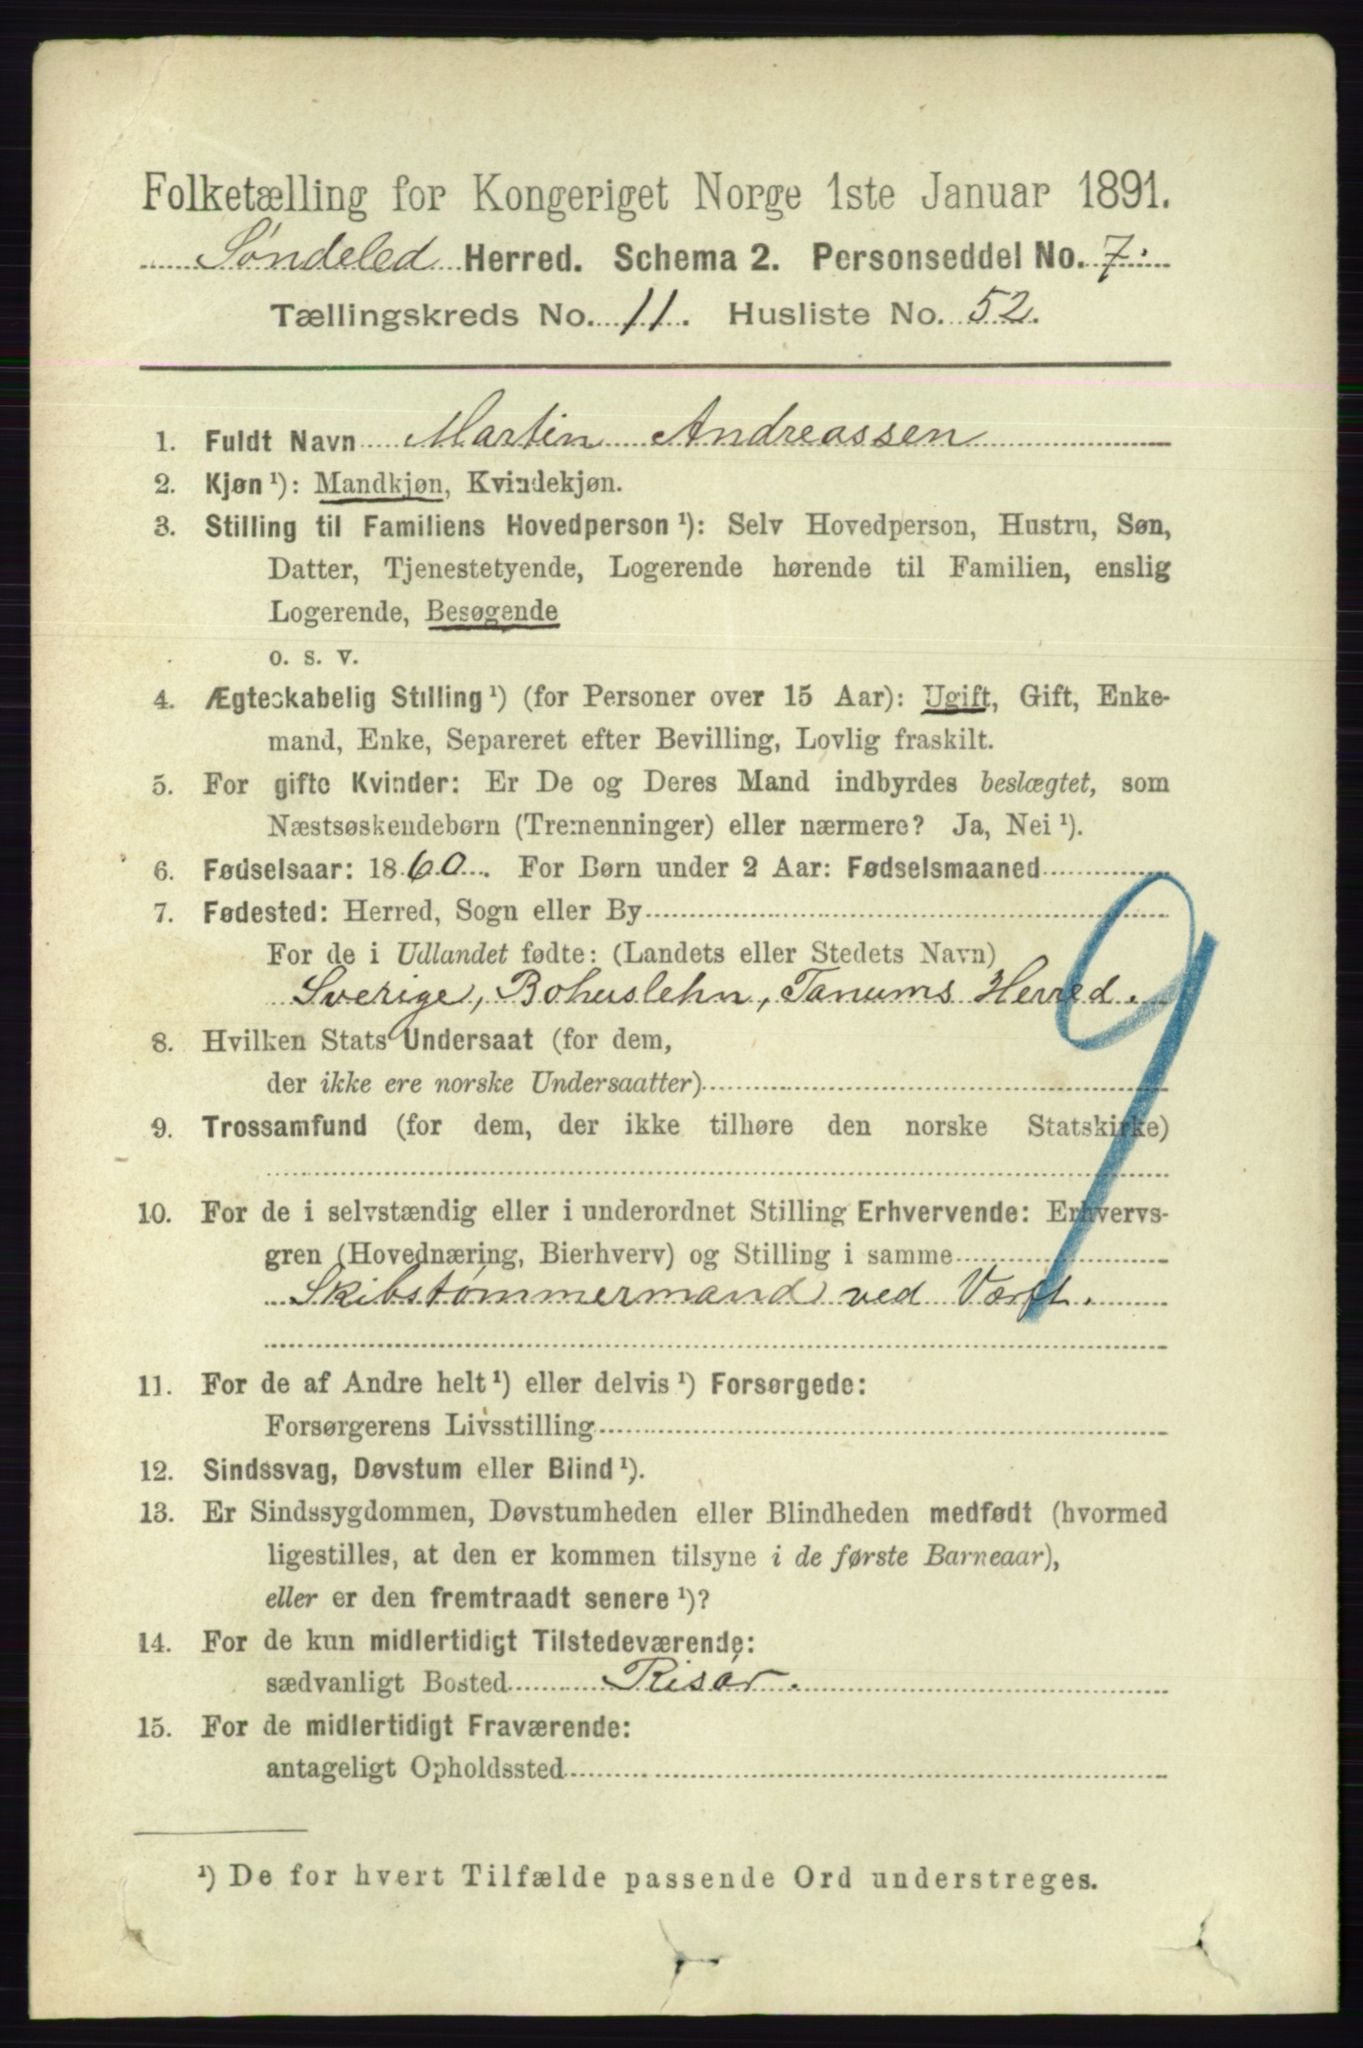 Folketælling for Kongeriget Norge 1ste Januar 1891.
Søndeled Herred. Schema 2. Personseddel No. 7.
Tællingskreds No. 11. Husliste No. 52.
1. Fuldt Navn Martin Andreassen
2. Kjøn ¹): Mandkjøn, Kvindekjøn.
3. Stilling til Familiens Hovedperson ¹): Selv Hovedperson, Hustru, Søn,
Datter, Tjenestetyende, Logerende hørende til Familien, enslig
Logerende, Besøgende
o. s. v.
4. Ægteskabelig Stilling ¹) (for Personer over 15 Aar): Ugift, Gift, Enke-
mand, Enke, Separeret efter Bevilling, Lovlig fraskilt.
5. For gifte Kvinder: Er De og Deres Mand indbyrdes beslægtet, som
Næstsøskendebørn (Tremenninger) eller nærmere? Ja, Nei ¹).
6. Fødselsaar: 1860. For Børn under 2 Aar: Fødselsmaaned
7. Fødested: Herred, Sogn eller By
For de i Udlandet fødte: (Landets eller Stedets Navn)
Sverige, Bohuslehn, Tanums Herred.
8. Hvilken Stats Undersaat (for dem,
der ikke ere norske Undersaatter)
9. Trossamfund (for dem, der ikke tilhøre den norske Statskirke)
10. For de i selvstændig eller i underordnet Stilling Erhvervende: Erhvervs-
gren (Hovednæring, Bierhverv) og Stilling i samme
Skibstømmermand ved Værft.
11. For de af Andre helt ¹) eller delvis ¹) Forsørgede:
Forsørgerens Livsstilling
12. Sindssvag, Døvstum eller Blind ¹).
13. Er Sindssygdommen, Døvstumheden eller Blindheden medfødt (hvormed
ligestilles, at den er kommen tilsyne i de første Barneaar),
eller er den fremtraadt senere ¹)?
14. For de kun midlertidigt Tilstedeværende:
sædvanligt Bosted Risør.
15. For de midlertidigt Fraværende:
antageligt Opholdssted
9
¹) De for hvert Tilfælde passende Ord understreges.